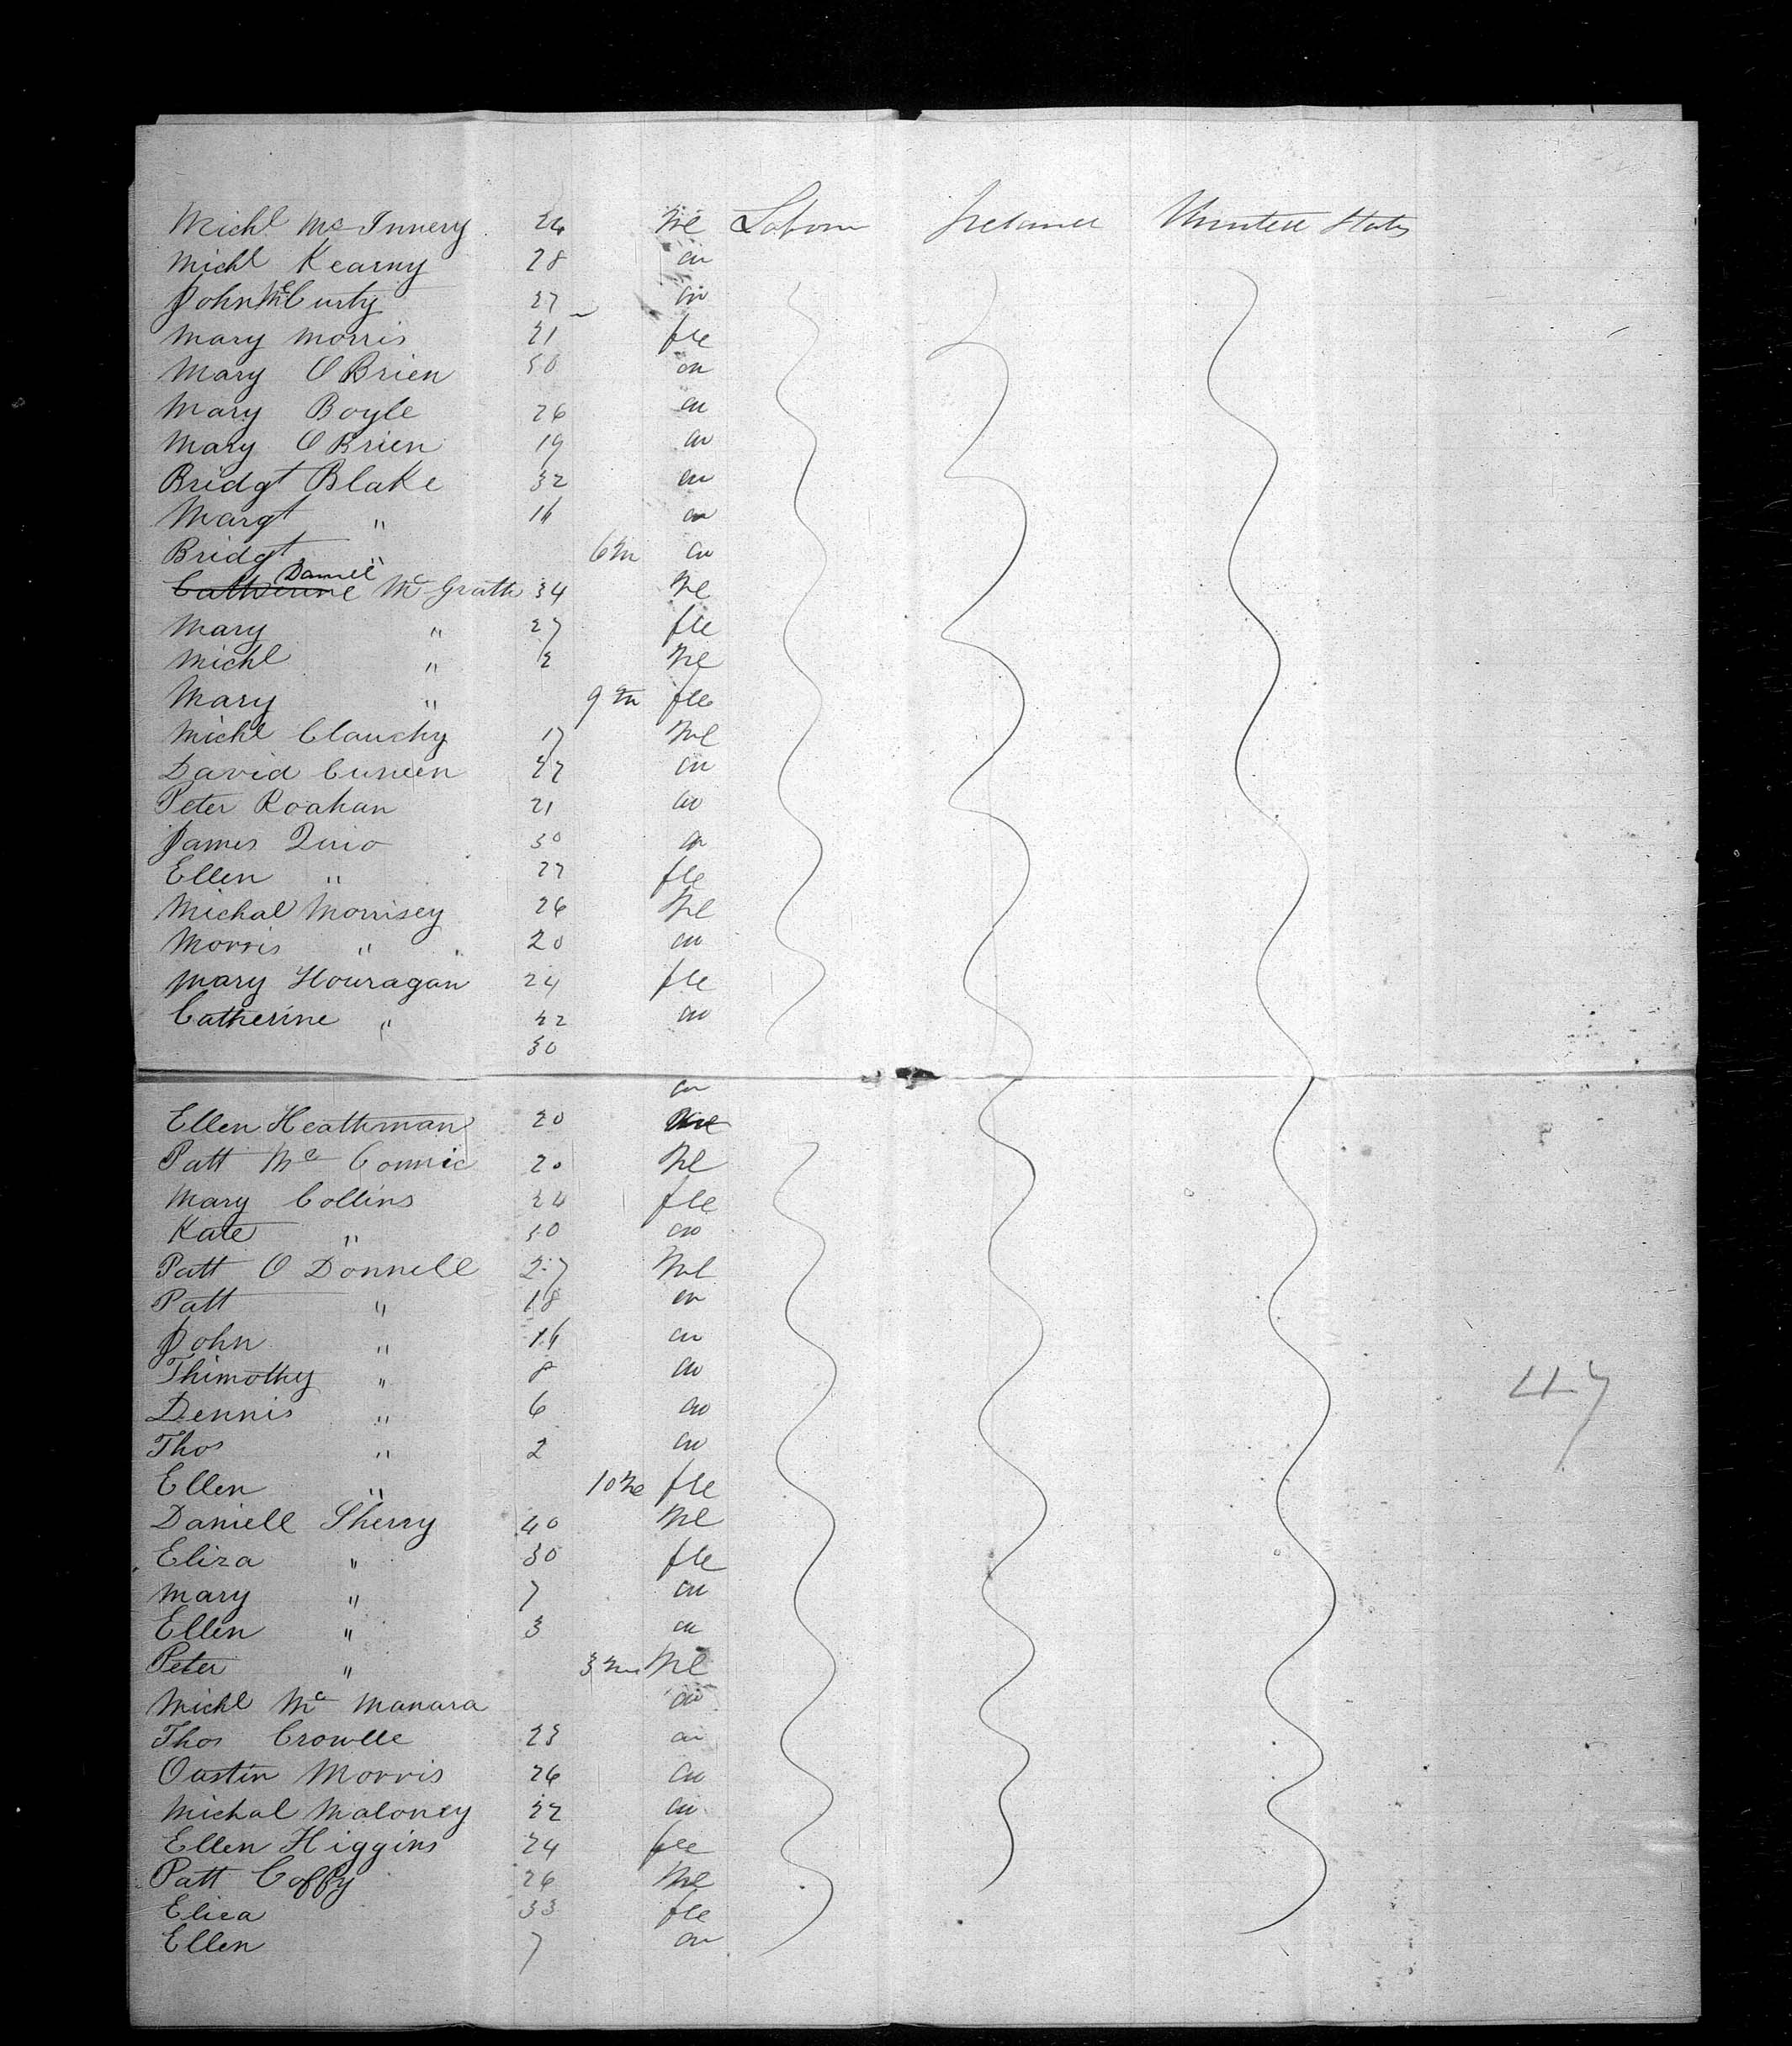 Michl Mc Innery 24 Me Labour Ireland Unuted States
Michl Kearny 28 do
John McCurty 27 do
Mary Morris 21 fle
Mary O Brien 50 do
Mary Boyle 26 do
Mary O Brien 19 do
Bridgt Blake 32 do
Margt " 16 do
Bridgt " 6m do
Catherine Daniel Mc Grath 34 Me
Mary " 27 fle
Michl " 2 Me
Mary " 9m fle
Michl Clanchy 17 Me
David Cuneen 22 do
Peter Roahan 21 do
James Quio 30 do
Ellen " 27 fle
Michal Morrisey 26 Me
Morris " 20 do
Mary Houragan 24 fle
Catherine " 22 do
30
do
Ellen Heathman 20
Patt Mc Connic 20 Me
Mary Collins 24 fle
Kate " 30 do
Patt O Donnell 27 Me
Patt " 18 do
John " 16 do
Thimothy " 8 do
Dennis " 6 do
Thos " 2 do
Ellen " 10m fle
Daniell Sherry 40 Me
Eliza " 30 fle
Mary " 7 do
Ellen " 3 do
Peter " 3m Me
Michl Mc Manara do
Thos Crowlle 23 do
Oustin Morris 26 do
Michal Maloney 22 do
Ellen Higgins 24 fle
Patt Coffy 26 Me
Elica 33 fle
Ellen 7 do
47